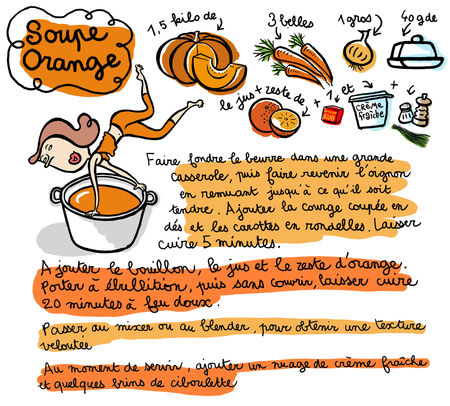 Soupe
Orange
1,5 kilo de
3 belles
1 gros
40 g de
le jus + zeste de
+ 1 et
+
KUB
CRÈME
FRAÎCHE
Faire fondre le beurre dans une grande
casserole, puis faire revenir l'oignon
en remuant jusqu'à ce qu'il soit
tendre. Ajouter la courge coupée en
dés et les carottes en rondelles. Laisser
cuire 5 minutes.
Ajouter le bouillon, le jus et le zeste d'orange.
Porter à ébullition, puis sans couvrir, laisser cuire
20 minutes à feu doux.
Passer au mixer ou au blender, pour obtenir une texture
veloutée
Au moment de servir, ajouter un nuage de crème fraîche
et quelques brins de ciboulette